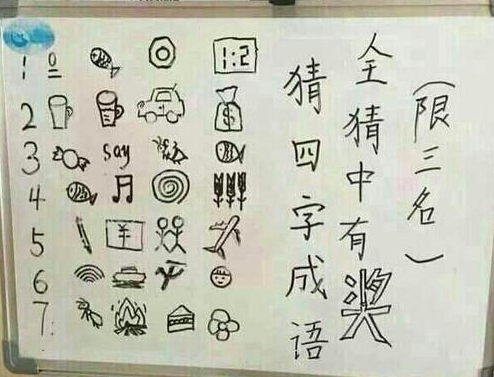 (限三名)
全猜中有奖
猜四字成语
1 1:2
2 $
3 say
4
5 ¥
6
7: